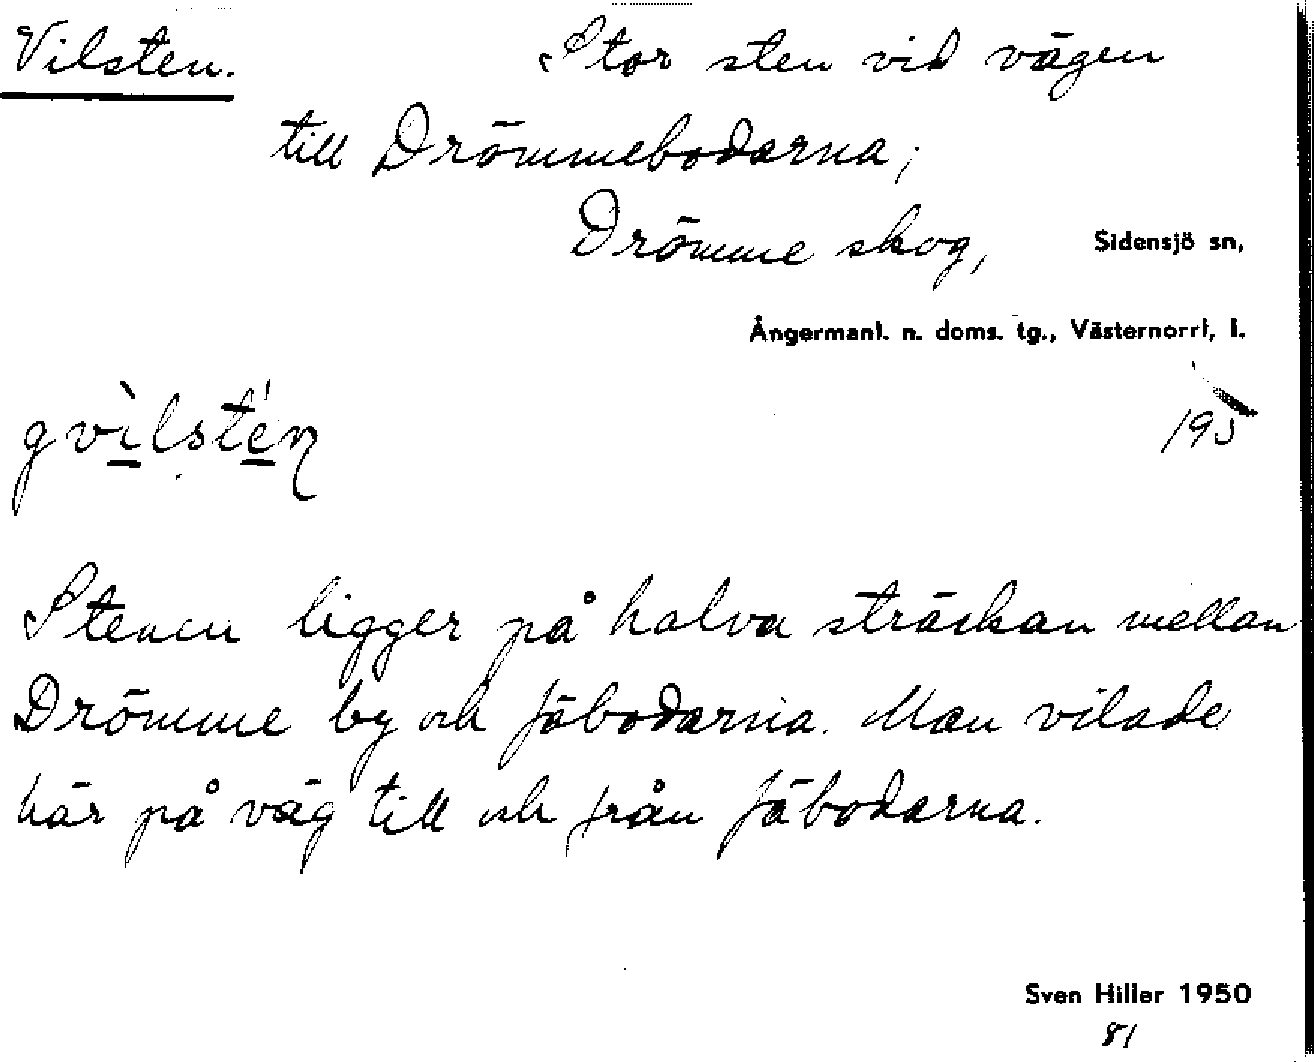 Vilsten. Stor sten vid vägen
till Drömmebodarna;
Drömme skog, Sidensjö sn,
Ångermanl. n. doms. tg., Västernorrl, l.
195
gvìlstén
Stenen ligger på halva sträckan mellan
Drömme by och fäbodarna. Man vilade
här på väg till och från fäbodarna.
Sven Hiller 1950
81